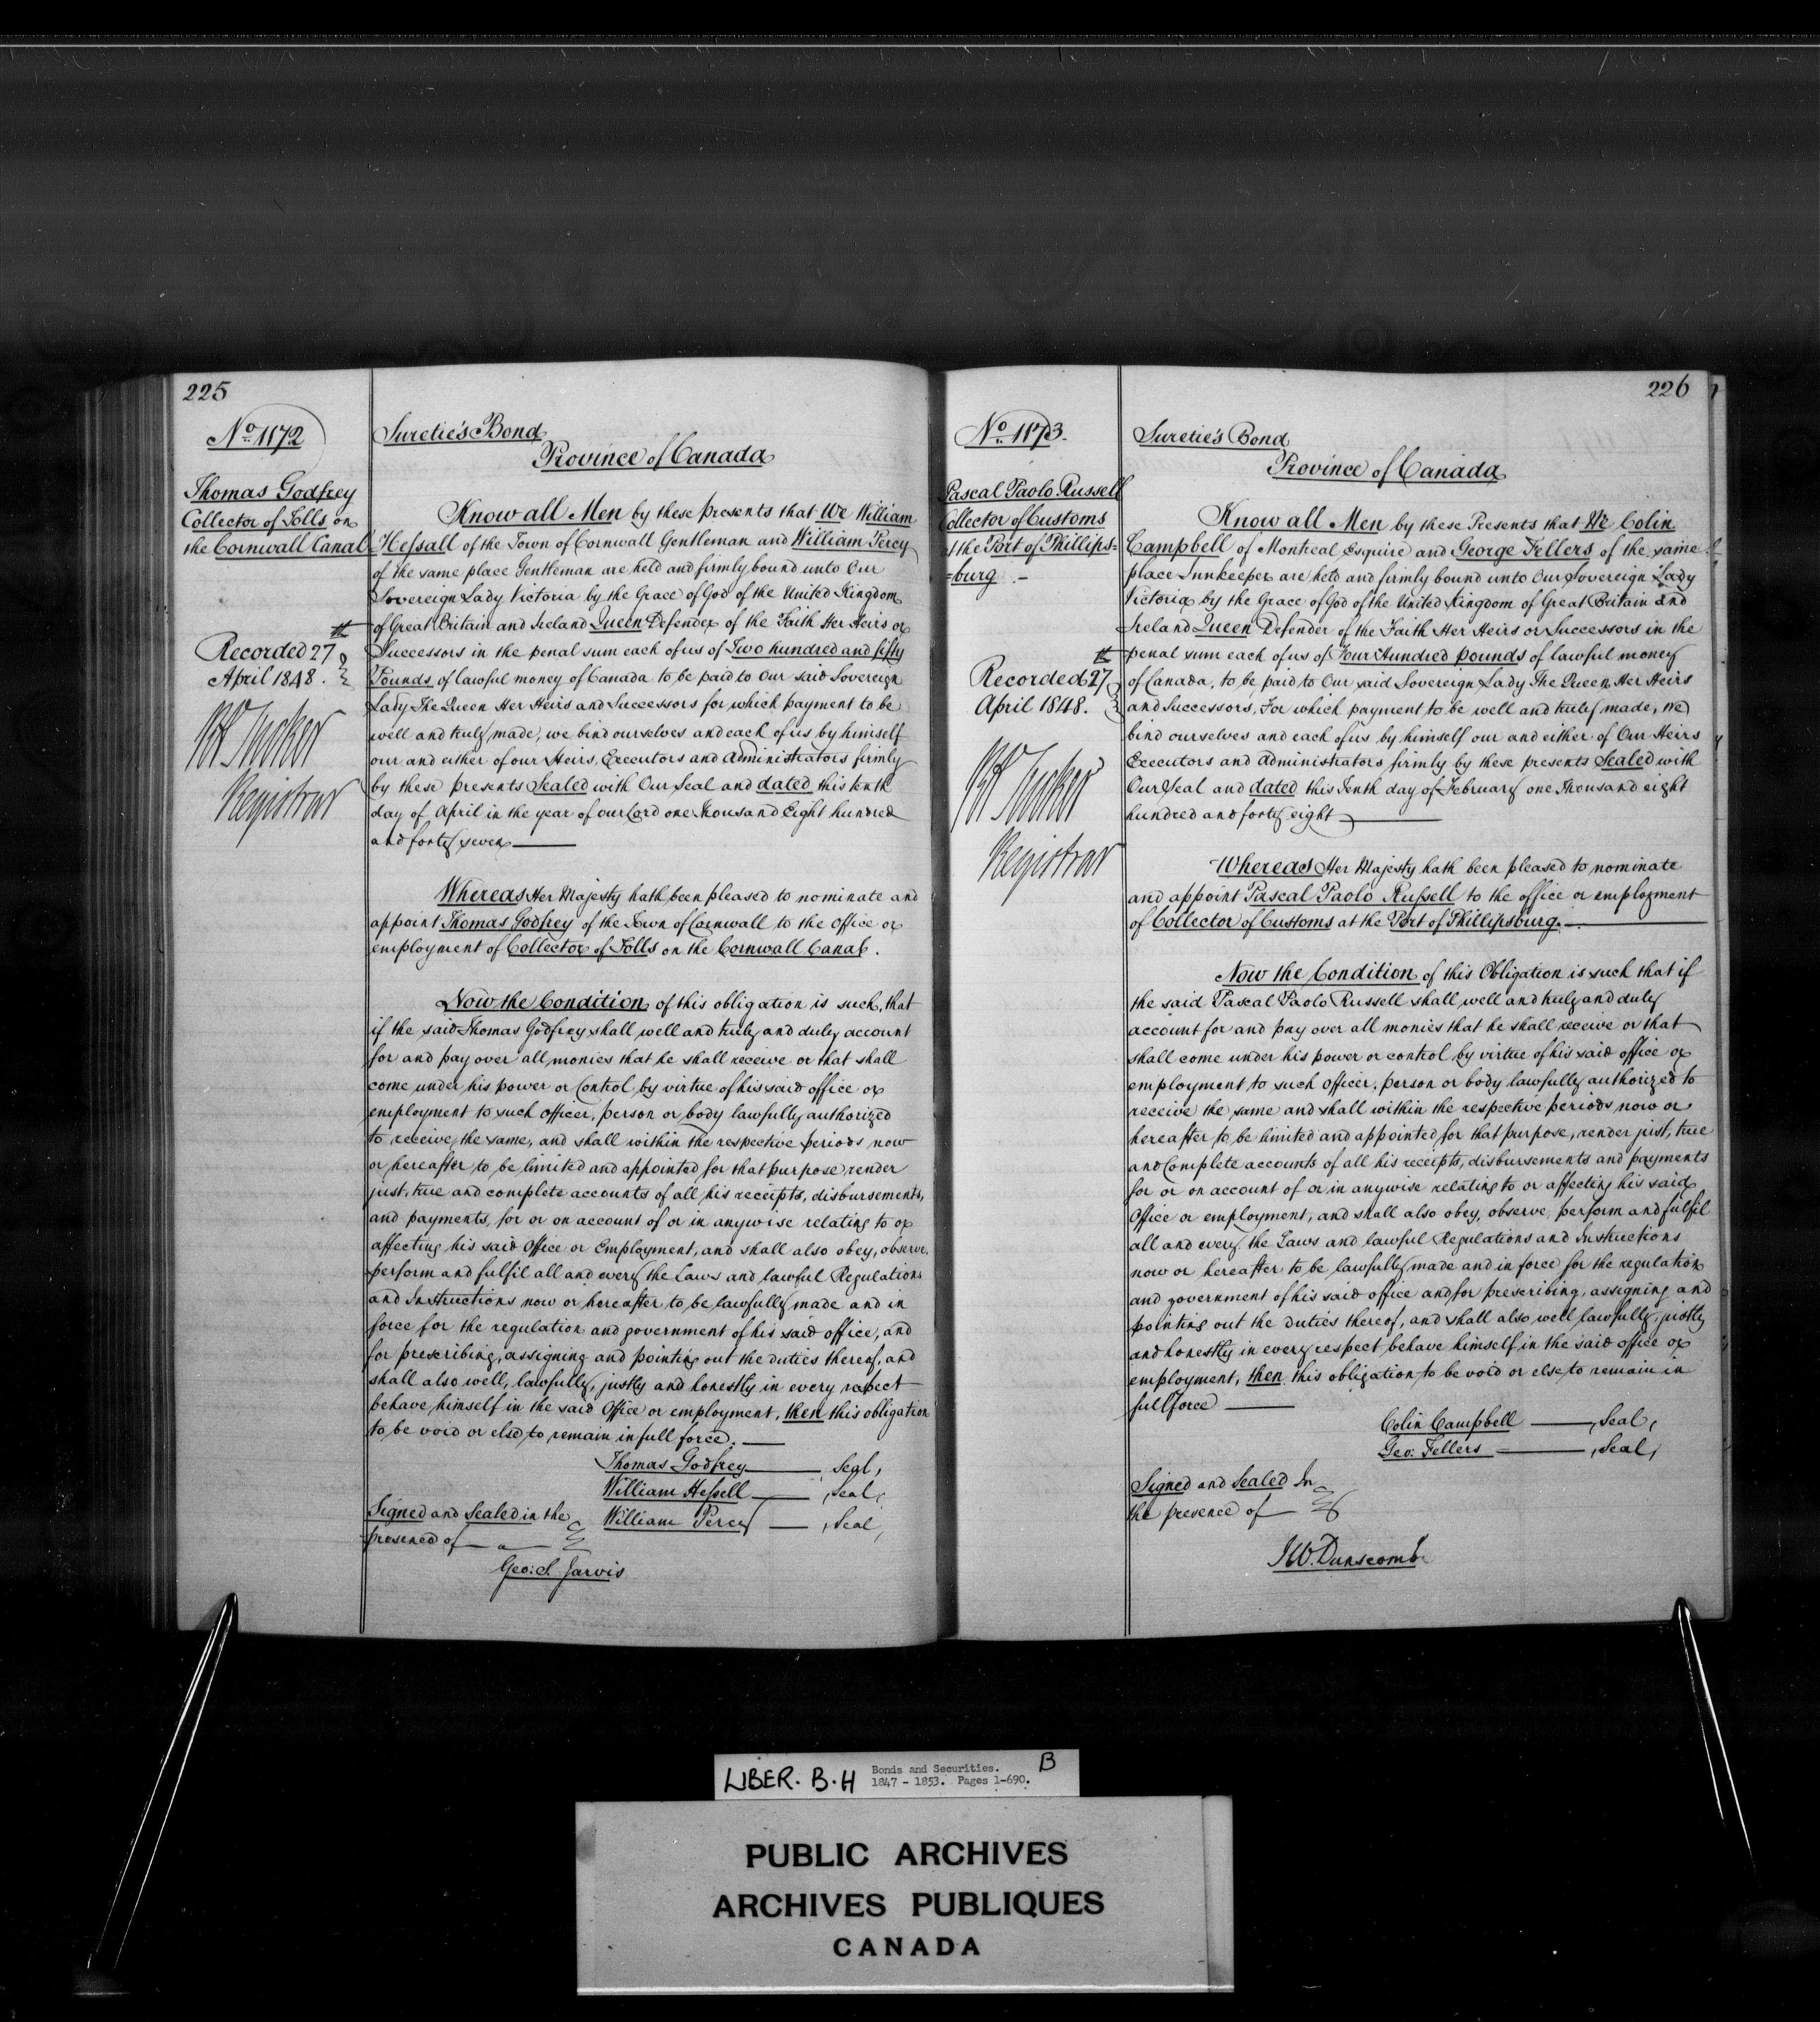 225
No. 1172
Thomas Godfrey
Collector of Tolls on
the Cornwall Canal
Recorded 27th
April 1848.
RA Tucker
Registrar
Suretie's Bond
Province of Canada
Know all Men by these presents that We William
Hessall of the Town of Cornwall Gentleman and William Percy
of the same place Gentleman are held and firmly bound unto Our
Sovereign Lady Victoria by the Grace of God of the United Kingdom
of Great Britain and Ireland Queen Defender of the Faith Her Heirs or
Successors in the penal sum each of us of Two hundred and fifty
Pounds of lawful money of Canada to be paid to Our said Sovereign
Lady The Queen Her Heirs and Successors for which payment to be
well and truly made, we bind ourselves and each of us by himself
our and either of our Heirs, Executors and Administrators firmly
by these presents Sealed with Our Seal and dated this tenth
day of April in the year of our Lord one thousand Eight hundred
and forty seven
Whereas Her Majesty hath been pleased to nominate and
appoint Thomas Godfrey of the Town of Cornwall to the Office or
employment of Collector of Tolls on the Cornwall Canal.
Now the Condition of this obligation is such, that
if the said Thomas Godfrey shall well and truly and duly account
for and pay over all monies that he shall receive or that shall
come under his power or Control by virtue of his said office or
employment to such officer, person or body lawfully authorized
to receive the same, and shall within the respective periods now
or hereafter to be limited and appointed for that purpose, render
just, true and complete accounts of all his receipts, disbursements,
and payments, for or on account of or in anywise relating to or
affecting his said Office or Employment, and shall also obey, observe,
perform and fulfil all and every the Laws and lawful Regulations
and Instructions now or hereafter to be lawfully made and in
force for the regulation and government of his said office, and
for prescribing, assigning and pointing out the duties thereof, and
shall also well, lawfully, justly and honestly in every respect
behave himself in the said Office or employment, then this obligation
to be void or else to remain in full force.
Thomas Godfrey Seal,
William Hessell , Seal,
Signed and Sealed in the William Percy , Seal,
presence of
Geo: S. Jarvis
226
No. 1173.
Pascal Paolo Russell
Collector of Customs
at the Port of Phillips=
=burg. -
Recorded 27th
April 1848.
RA Tucker
Registrar
Suretie's Bond
Province of Canada
Know all Men by these Presents that We Colin
Campbell of Montreal Esquire and George Fellers of the same
place Innkeeper are held and firmly bound unto Our Sovereign Lady
Victoria by the Grace of God of the United Kingdom of Great Britain and
Ireland Queen Defender of the Faith Her Heirs or Successors in the
penal sum each of us of Four Hundred pounds of lawful money
of Canada, to be paid to Our said Sovereign Lady The Queen Her Heirs
and Successors, For which payment to be well and truly made, we
bind ourselves and each of us by himself our and either of Our Heirs
Executors and Administrators firmly by these presents Sealed with
Our Seal and dated this Tenth day of February one Thousand eight
hundred and forty eight
Whereas Her Majesty hath been pleased to nominate
and appoint Pascal Paolo Russell to the office or employment
of Collector of Customs at the Port of Phillipsburg.
Now the Condition of this Obligation is such that if
the said Pascal Paolo Russell shall well and truly and duly
account for and pay over all monies that he shall receive or that
shall come under his power or control by virtue of his said office or
employment to such Officer, person or body lawfully authorized to
receive the same and shall within the respective periods now or
hereafter to be limited and appointed for that purpose, render just, true
and Complete accounts of all his receipts, disbursements and payments
for or on account of or in anywise relating to or affecting his said
Office or employment, and shall also obey, observe, perform and fulfil
all and every the Laws and lawful Regulations and Instructions
now or hereafter to be lawfully made and in force for the regulation
and government of his said office and for prescribing, assigning and
pointing out the duties thereof, and shall also well lawfully, justly
and honestly in every respect behave himself in the said office or
employment, then this obligation to be void or else to remain in
full force
Colin Campbell , Seal,
Geo: Fellers , Seal,
Signed and Sealed In
the presence of
J W. Dunscomb
LIBER. B.H Bonds and Securities. B
1847 - 1853. Pages 1-690.
PUBLIC ARCHIVES
ARCHIVES PUBLIQUES
CANADA